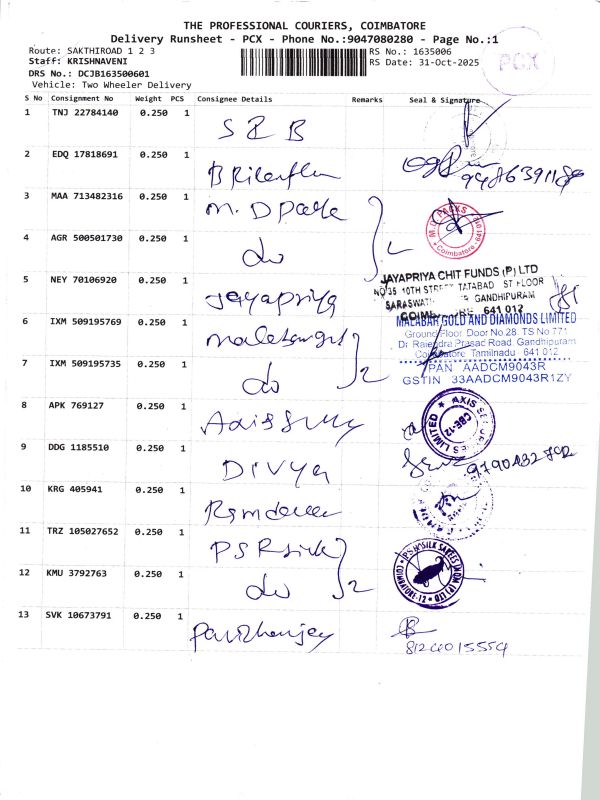 THE PROFESSIONAL COURIERS, COIMBATORE
Delivery Runsheet - PCX - Phone No.:9047080280 - Page No.:1
Route: SAKTHIROAD 1 2 3
RS No.: 1635006
Staff: KRISHNAVENI
RS Date: 31-Oct-2025
DRS No.: DCJB163500601
Vehicle: Two Wheeler Delivery
PCX
S No Consignment No Weight PCS Consignee Details Remarks Seal & Signature
1 TNJ 22784140 0.250 1
2 EDQ 17818691 0.250 1
3 MAA 713482316 0.250 1
4 AGR 500501730 0.250 1 do
5 NEY 70106920 0.250 1 Jayapriya
JAYAPRIYA CHIT FUNDS (P) LTD
NO 35 10TH STREET TATABAD
GANDHIPURAM
641 012
6 IXM 509195769 0.250 1
MALABAR GOLD AND DIAMONDS LIMITED
Ground Floor, Door No.28, TS No 771
Dr Rajendra Prasad Road, Gandhipuram
Coimbatore Tamilnadu 641 012
PAN AADCM9043R
GSTIN 33AADCM9043R1ZY
7 IXM 509195735 0.250 1 do 2
8 APK 769127 0.250 1
AXIS SECURITIES LIMITED
CBE-12
9 DDG 1185510 0.250 1 DIVYA
10 KRG 405941 0.250 1
11 TRZ 105027652 0.250 1
12 KMU 3792763 0.250 1 do 2
COIMBATORE-12
13 SVK 10673791 0.250 1
8124015554